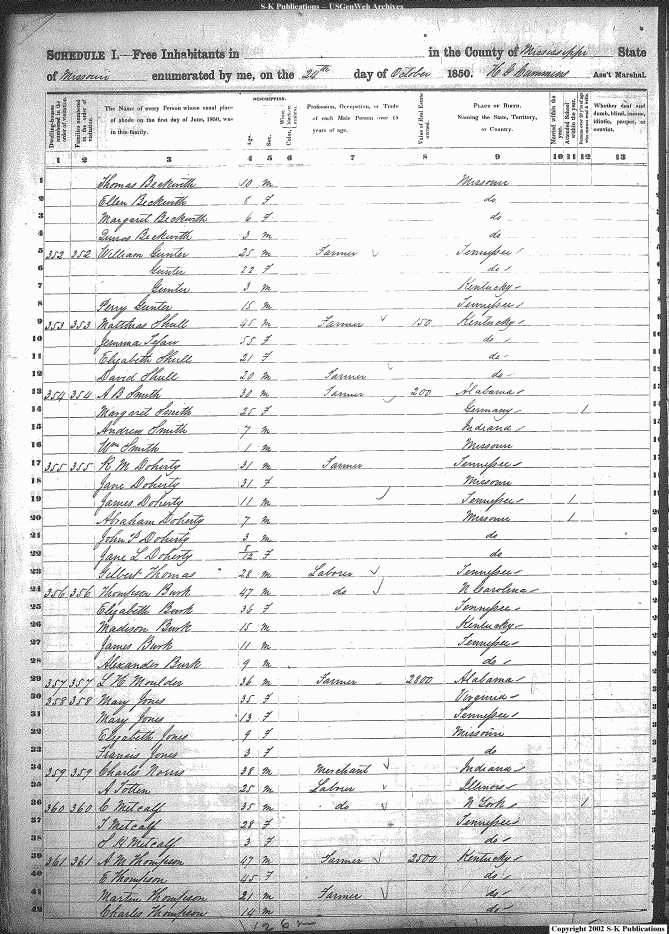 S-K Publications -- USGenWeb Archives
SCHEDULE I.—Free Inhabitants in in the County of Mississippi State
of Missouri enumerated by me, on the 24th day of October 1850. Ass't Marshal.
Dwelling-houses numbered in the order of visitation.
Families numbered in the order of visitation.
The Name of every Person whose usual place of abode on the first day of June, 1850, was in this family.
DESCRIPTION.
Age.
Sex.
Profession, Occupation, or Trade of each Male Person over 15 years of age.
Value of Real Estate owned.
PLACE OF BIRTH. Naming the State, Territory, or Country.
Married within the year.
Attended School within the year.
Whether deaf and dumb, blind, insane, idiotic, pauper, or convict.
1 2 3 4 5 6 7 8 9 10 11 12 13
1 Thomas Beckwith 10 m Missouri
2 Ellen Beckwith 8 F do
3 Margaret Beckwith 6 F do
4 Beckwith 3 m do
5 352 352 William Gunter 25 m Farmer Tennessee
6 Gunter 22 F do
7 Gunter 3 m Kentucky
8 Perry Gunter 15 m Tennessee
9 353 353 Matthias Shull 45 m Farmer 150 Kentucky
10 55 F do
11 Elizabeth Shull 21 F do
12 David Shull 20 m Farmer do
13 354 354 A B Smith 30 m Farmer 200 Alabama
14 Margaret Smith 25 F Germany 1
15 Andrew Smith 7 m Indiana
16 Wm Smith 1 m Missouri
17 355 355 R M Doherty 31 m Farmer Tennessee
18 Jane Doherty 31 F Missouri
19 James Doherty 11 m Tennessee 1
20 Abraham Doherty 7 m Missouri 1
21 John P Doherty 3 m do
22 Jane L Doherty F do
23 Gilbert Thomas 28 m Laborer Tennessee
24 356 356 Thompson Burk 47 m do N Carolina
25 Elizabeth Burk 36 F Tennessee
26 Madison Burk 15 m Kentucky
27 James Burk 11 m Tennessee
28 Alexander Burk 9 m do
29 357 357 L H Moulder 36 m Farmer 2800 Alabama
30 358 358 Mary Jones 35 F Virginia
31 Mary Jones 13 F Tennessee
32 Elizabeth Jones 9 F Missouri
33 Francis Jones 3 F do
34 359 359 Charles Norris 38 m Merchant Indiana
35 A Totten 25 m Laborer Illinois
36 360 360 C Metcalf 35 m do N York 1
37 T Metcalf 28 F Tennessee
38 S H Metcalf 3 F do
39 361 361 A M Thompson 47 m Farmer 2500 Kentucky
40 E Thompson 45 F do
41 Martin Thompson 21 m Farmer do
42 Charles Thompson 14 m do
Copyright 2002 S-K Publications